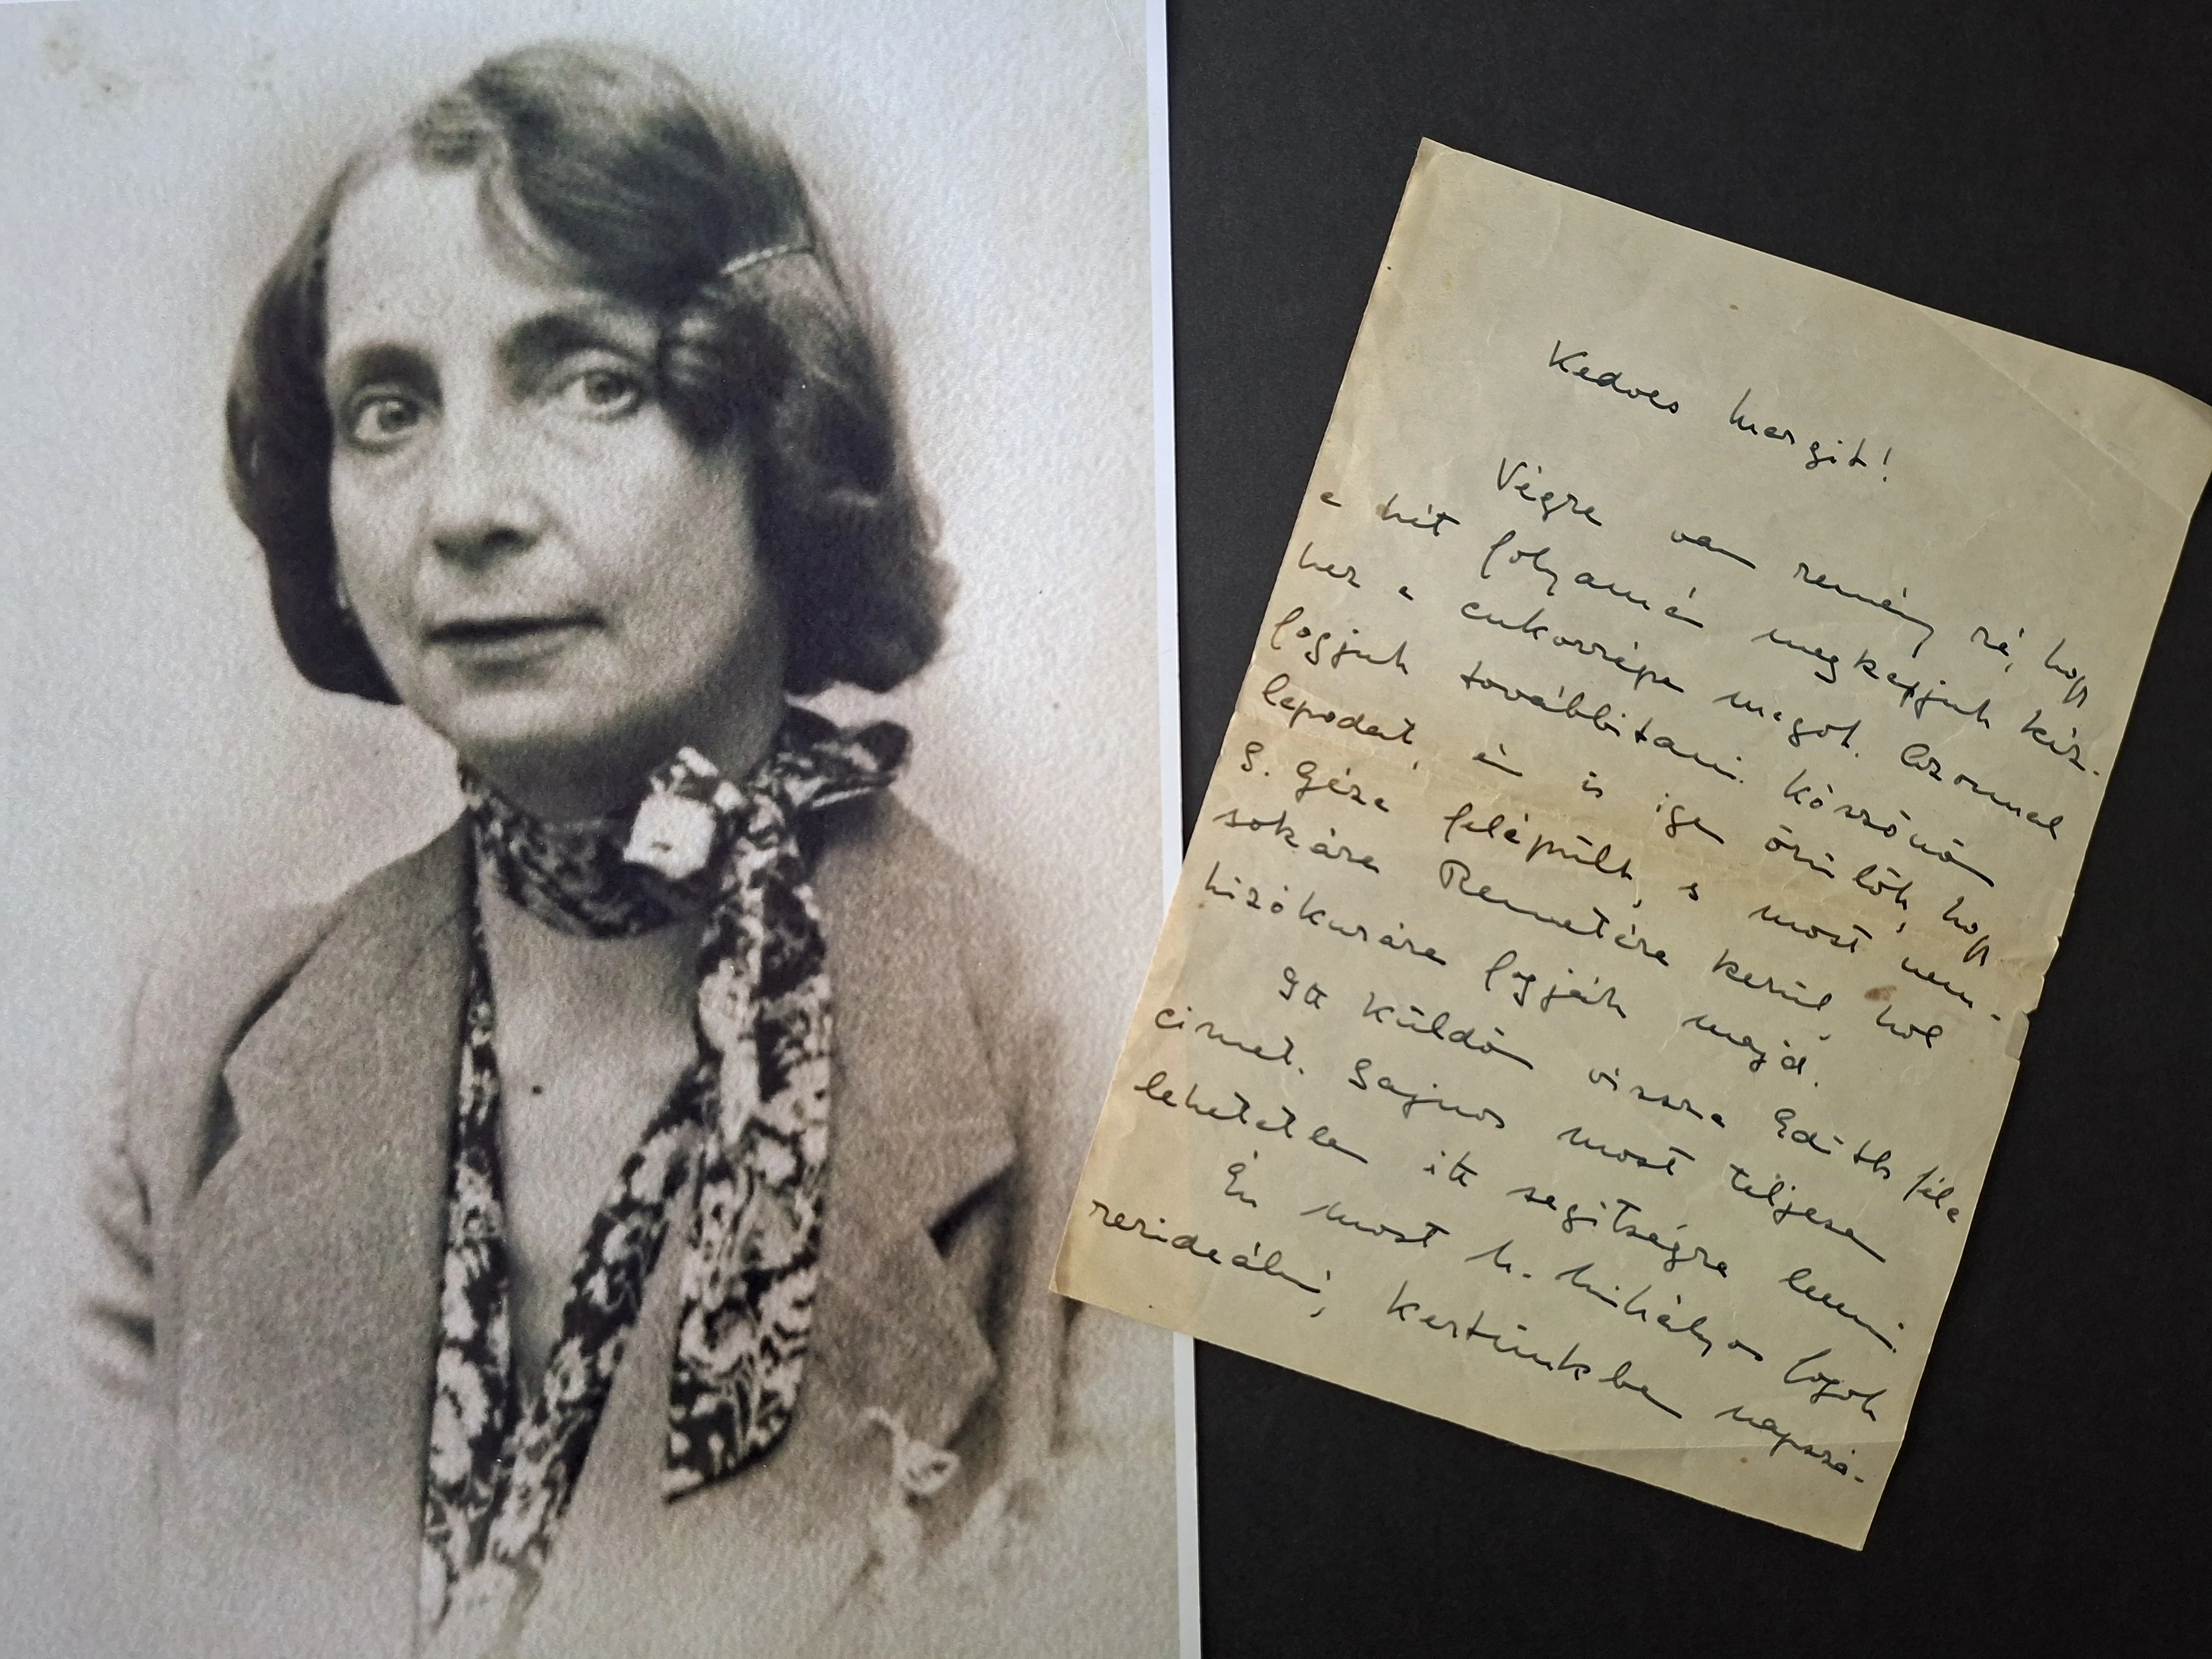 Kedves Margit!
Végre van remény rá, hogy
a hét folyamán megkapjuk kéz-
hez a cukorrépa magot. Azonnal
fogjuk továbbítani. Köszönöm
lapodat, én is igen örülök, hogy
S. Géza felépült, s most nem-
sokára Remetére kerül, hol
hizókurára fogják majd.
Itt küldöm vissza Edith féle
cimet. Sajnos most teljesen
lehetetlen itt segitségre lenni.
Én most h. mihályon fogok
rezideálni, kertünkben napszá-